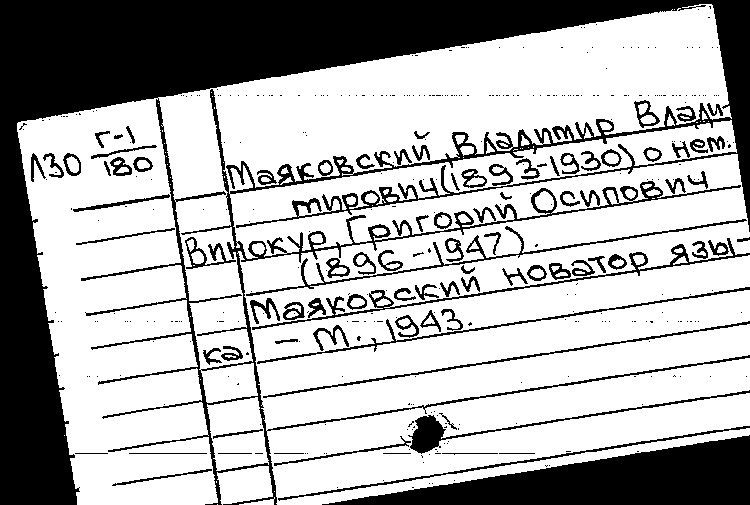 Л30 Г-1/180
Маяковский, Владимир Влади-
мирович (1893-1930) о нем.
Винокур, Григорий Осипович
(1896-1947).
Маяковский новатор язы-
ка. - М., 1943.